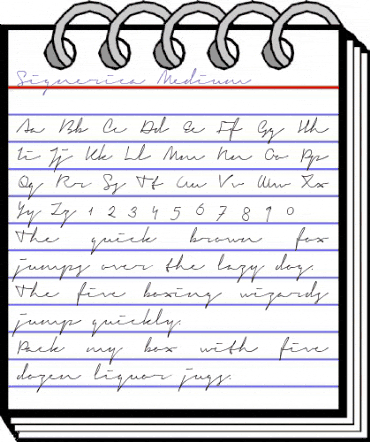 Signerica Medium
Aa Bb Cc Dd Ee Ff Gg Hh
Ii Jj Kk Ll Mm Nn Oo Pp
Qq Rr Ss Tt Uu Vv Ww Xx
Yy Zz 1 2 3 4 5 6 7 8 9 0
The quick brown fox
jumps over the lazy dog.
The five boxing wizards
jump quickly.
Pack my box with five
dozen liquor jugs.